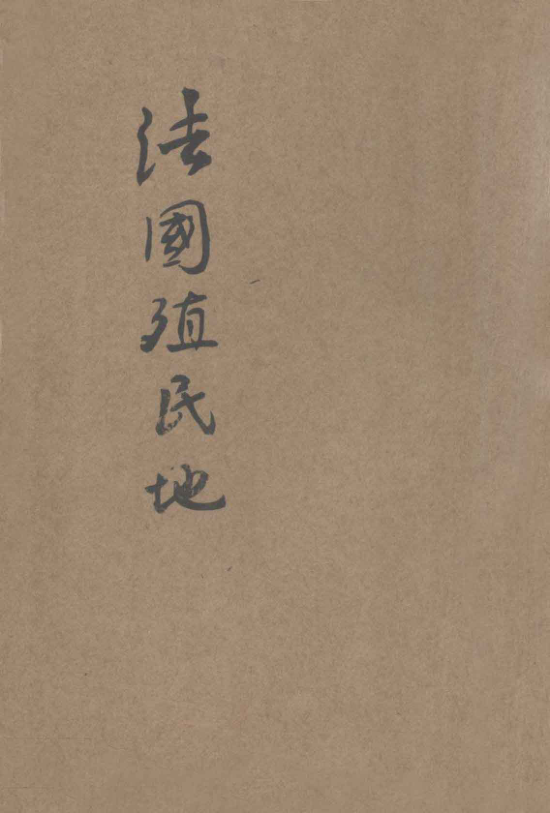 法國殖民地